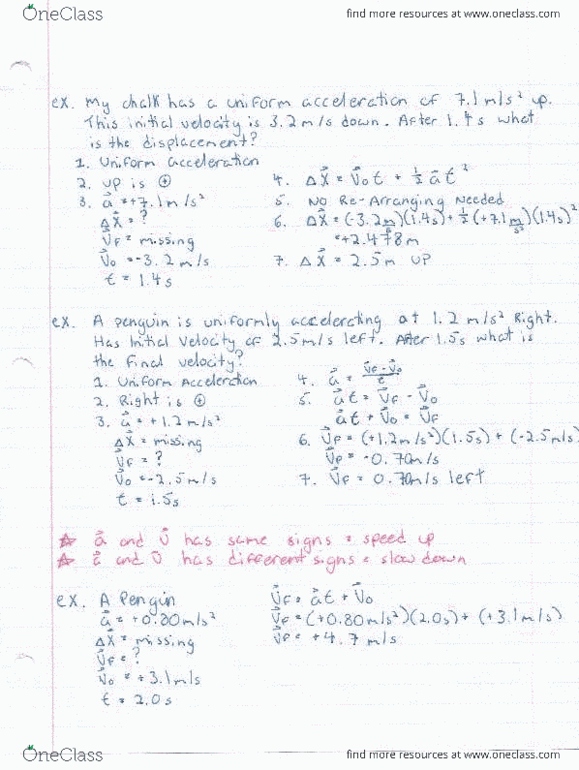 OneClass
find more resources at www.oneclass.com
ex. My chalk has a uniform acceleration of 7.1 m/s² up.
This initial velocity is 3.2 m/s down. After 1.4s what
is the displacement?
1. Uniform acceleration
2. up is ⊕
3. a⃗ = +7.1 m/s²
ΔX⃗ = ?
V⃗F = missing
V⃗o = -3.2 m/s
t = 1.4s
4. ΔX⃗ = V⃗o t + ½ a⃗ t²
5. No Re-Arranging Needed
6. ΔX⃗ = (-3.2 m/s)(1.4s) + ½ (+7.1 m/s²)(1.4s)²
= +2.478m
7. ΔX⃗ = 2.5m UP
ex. A penguin is uniformly accelerating at 1.2 m/s² Right.
Has Initial Velocity of 2.5m/s left. After 1.5s what is
the final velocity?
1. Uniform Acceleration
2. Right is ⊕
3. a⃗ = +1.2 m/s²
ΔX⃗ = missing
V⃗F = ?
V⃗o = -2.5 m/s
t = 1.5s
4. a⃗ = (V⃗F - V⃗o)/t
5. a⃗t = V⃗F - V⃗o
a⃗t + V⃗o = V⃗F
6. V⃗F = (+1.2m/s²)(1.5s) + (-2.5m/s)
V⃗F = -0.70m/s
7. V⃗F = 0.70m/s left
☆ a⃗ and v⃗ has same signs = speed up
☆ a⃗ and v⃗ has different signs = slow down
ex. A Penguin
a⃗ = +0.80m/s²
ΔX⃗ = missing
V⃗F = ?
V⃗o = +3.1m/s
t = 2.0s
V⃗F = a⃗t + V⃗o
V⃗F = (+0.80m/s²)(2.0s) + (+3.1m/s)
V⃗F = +4.7 m/s
OneClass
find more resources at www.oneclass.com